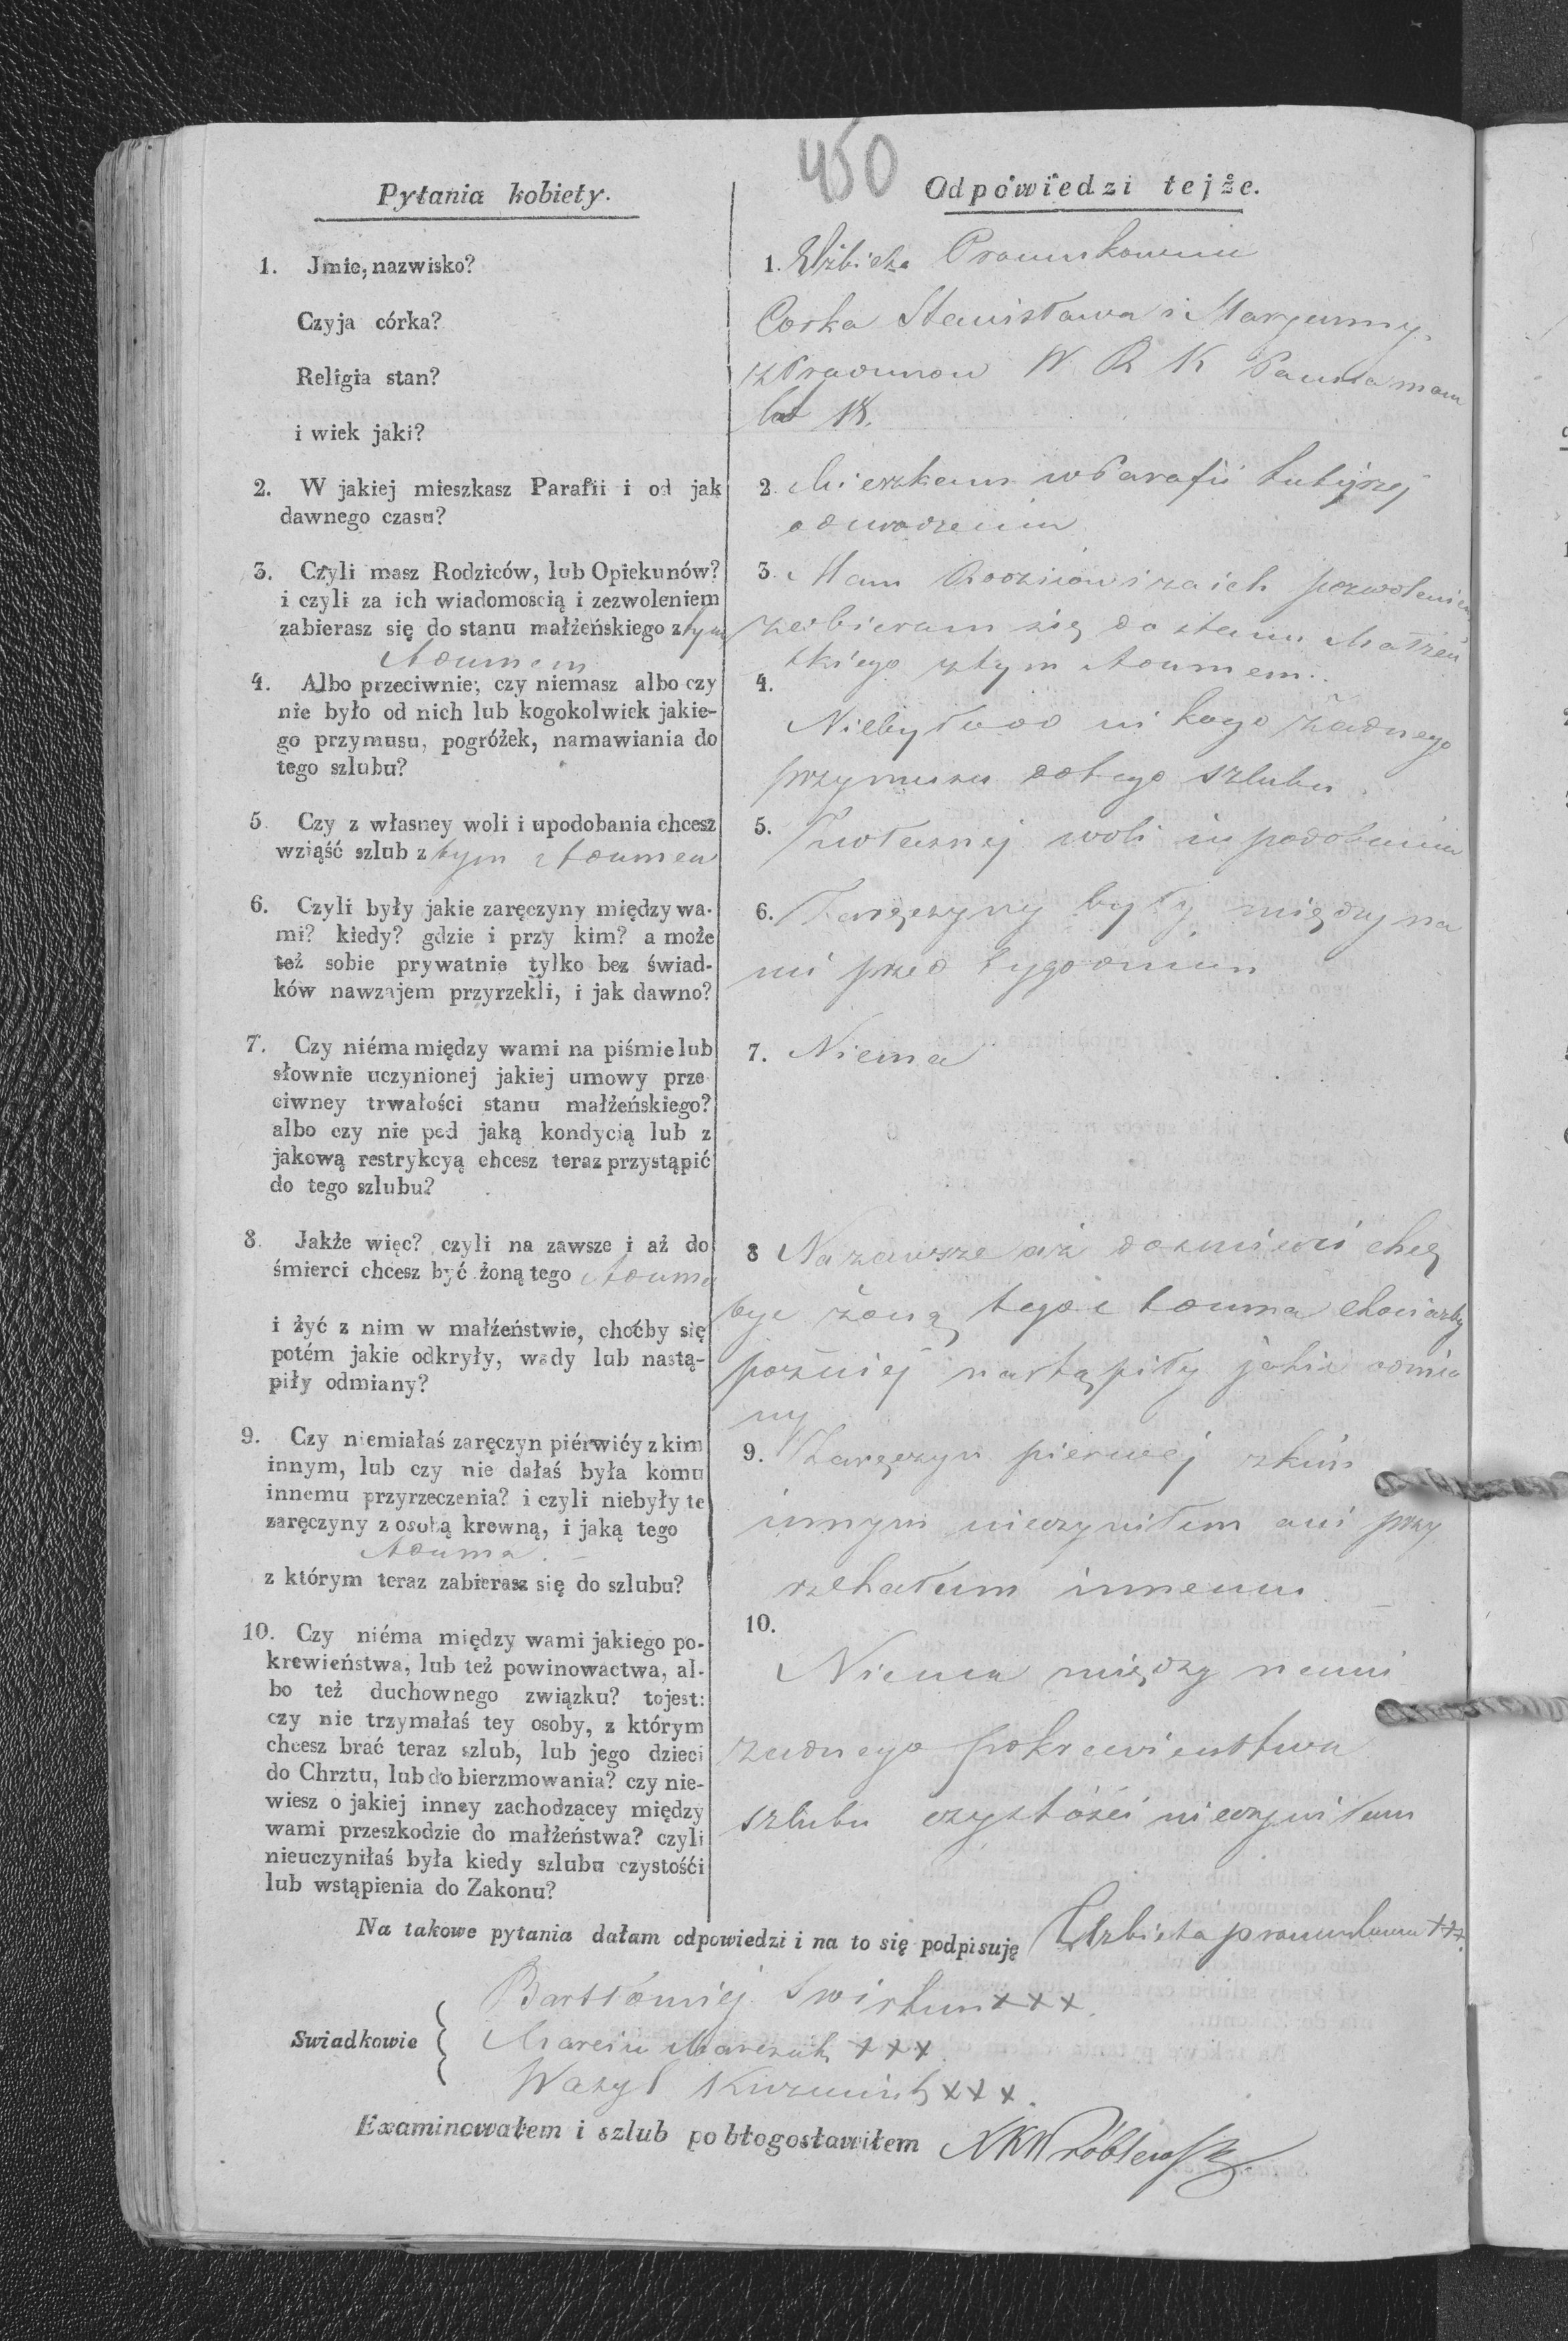 450
Pytania kobiety.
1. Jmie, nazwisko?
Czyja córka?
Religia stan?
i wiek jaki?
2. W jakiej mieszkasz Parafii i od jak
dawnego czasu?
3. Czyli masz Rodziców, lub Opiekunów?
i czyli za ich wiadomoscią i zezwoleniem
zabierasz się do stanu małżeńskiego z tym
Adamem
4. Albo przeciwnie, czy niemasz albo czy
nie było od nich lub kogokolwiek jakie-
go przymusu, pogróżek, namawiania do
tego szlubu?
5. Czy z własney woli i upodobania chcesz
wziąść szlub z tym Adamem
6. Czyli były jakie zaręczyny między wa-
mi? kiedy? gdzie i przy kim? a może
też sobie prywatnie tylko bez świad-
ków nawzajem przyrzekli, i jak dawno?
7. Czy niéma między wami na piśmie lub
słownie uczynionej jakiej umowy prze
ciwney trwałości stanu małżeńskiego?
albo czy nie pod jaką kondycią lub z
jakową restrykcyą chcesz teraz przystąpić
do tego szlubu?
8. Jakże więc? czyli na zawsze i aż do
śmierci chcesz być żoną tego Adama
i żyć z nim w małżeństwie, choćby się
potém jakie odkryły, wady lub nastą-
piły odmiany?
9. Czy niemiałaś zaręczyn piérwićy z kim
innym, lub czy nie dałaś była komu
innemu przyrzeczenia? i czyli niebyły te
zaręczyny z osobą krewną, i jaką tego
Adama.
z którym teraz zabierasz się do szlubu?
10. Czy niéma między wami jakiego po-
krewieństwa, lub też powinowactwa, al-
bo też duchownego związku? tojest:
czy nie trzymałaś tey osoby, z którym
chcesz brać teraz szlub, lub jego dzieci
do Chrztu, lub do bierzmowania? czy nie-
wiesz o jakiej inney zachodzącey między
wami przeszkodzie do małżeństwa? czyli
nieuczyniłaś była kiedy szlubu czystośći
lub wstąpienia do Zakonu?
Odpowiedzi tejże.
1. Elżbieta
Corka Stanisława i Maryanny
W R K Panna mam
lat 18.
2. Mieszkam w Parafii tutejszej
od urodzenia
3. Mam Rodziców i za ich pozwoleniem
zabieram się do stanu Małżeń
skiego z tym Adamem.
4.
Niebyło od nikogo żadnego
przymusu do tego szlubu.
5. Z własnej woli i upodobania
6. Zaręczyny były między na
mi przed tygodniem
7. Niema
8 Na zawsze aż do śmierci chcę
być żoną tego Adama chociażby
poźniej nastąpiły jakie odmia
ny
9. Zaręczyn pierwej z kim
innym nieczyniłam ani przy
rzekałam innemu
10.
Niema między nami
żadnego pokrewieństwa
szlubu czystości nieczyniłam
Na takowe pytania dałam odpowiedzi i na to się podpisuję Elżbieta +++.
Swiadkowie
Bartłomiej +++.
Marcin Marczak +++.
Wasyl +++.
Examinowałem i szlub pobłogosławiłem XKWróblewski